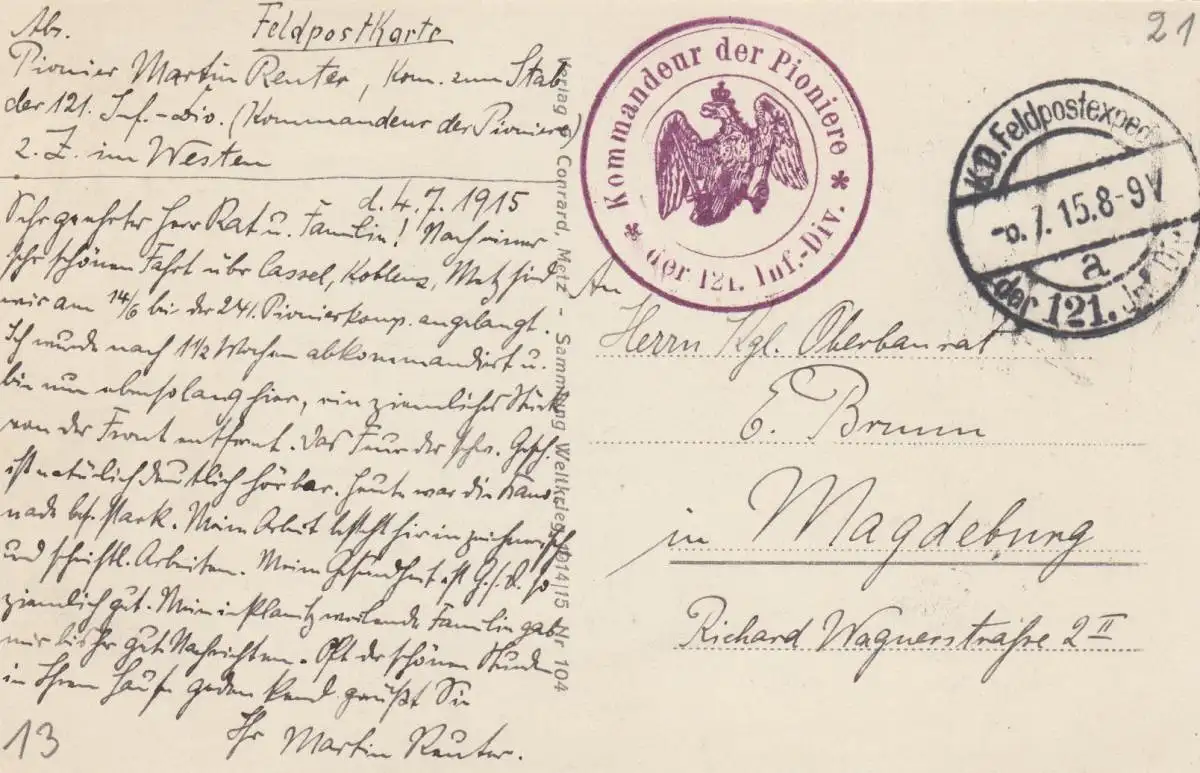 Abs.
Feldpostkarte
Pionier Martin Reuter, Kom. zum Stab
der 121. Inf.-Div. (Kommandeur der Pioniere)
2. Z. im Westen
d. 4. 7. 1915
Sehr geehrter Herr Rat u. Familie! Nach einer
sehr schönen Fahrt über Cassel, Koblenz, Metz sind
wir am 14/6 bei der 241. Pionierkomp. angelangt.
Ich wurde nach 1 1/2 Wochen abkommandiert u.
bin nun ebenso lang hier, ein ziemliches Stück
von der Front entfernt. Das Feuer der schw. Gesch.
ist natürlich deutlich hörbar. Heute war die Kano-
nade bes. stark. Meine Arbeit besteht hier in zeichnerisch.
und schriftl. Arbeiten. Meine Gesundheit ist G. s. D. so
ziemlich gut. Meine in Planitz weilende Familie gab
mir bisher gute Nachrichten. Oft der schönen Stunden
in Ihrem Hause gedenkend grüßt Sie
Ihr Martin Reuter.
13
Verlag v. Conrard, Metz - Sammlung Weltkrieg 1914/15 Nr 104
Kommandeur der Pioniere
* der 121. Inf.-Div. *
21
K.D. Feldpostexped
7. 15. 8-9V
a
der 121. Inf. Div.
An
Herrn Kgl. Oberbaurat
E. Brunn
in Magdeburg
Richard Wagnerstraße 2 II